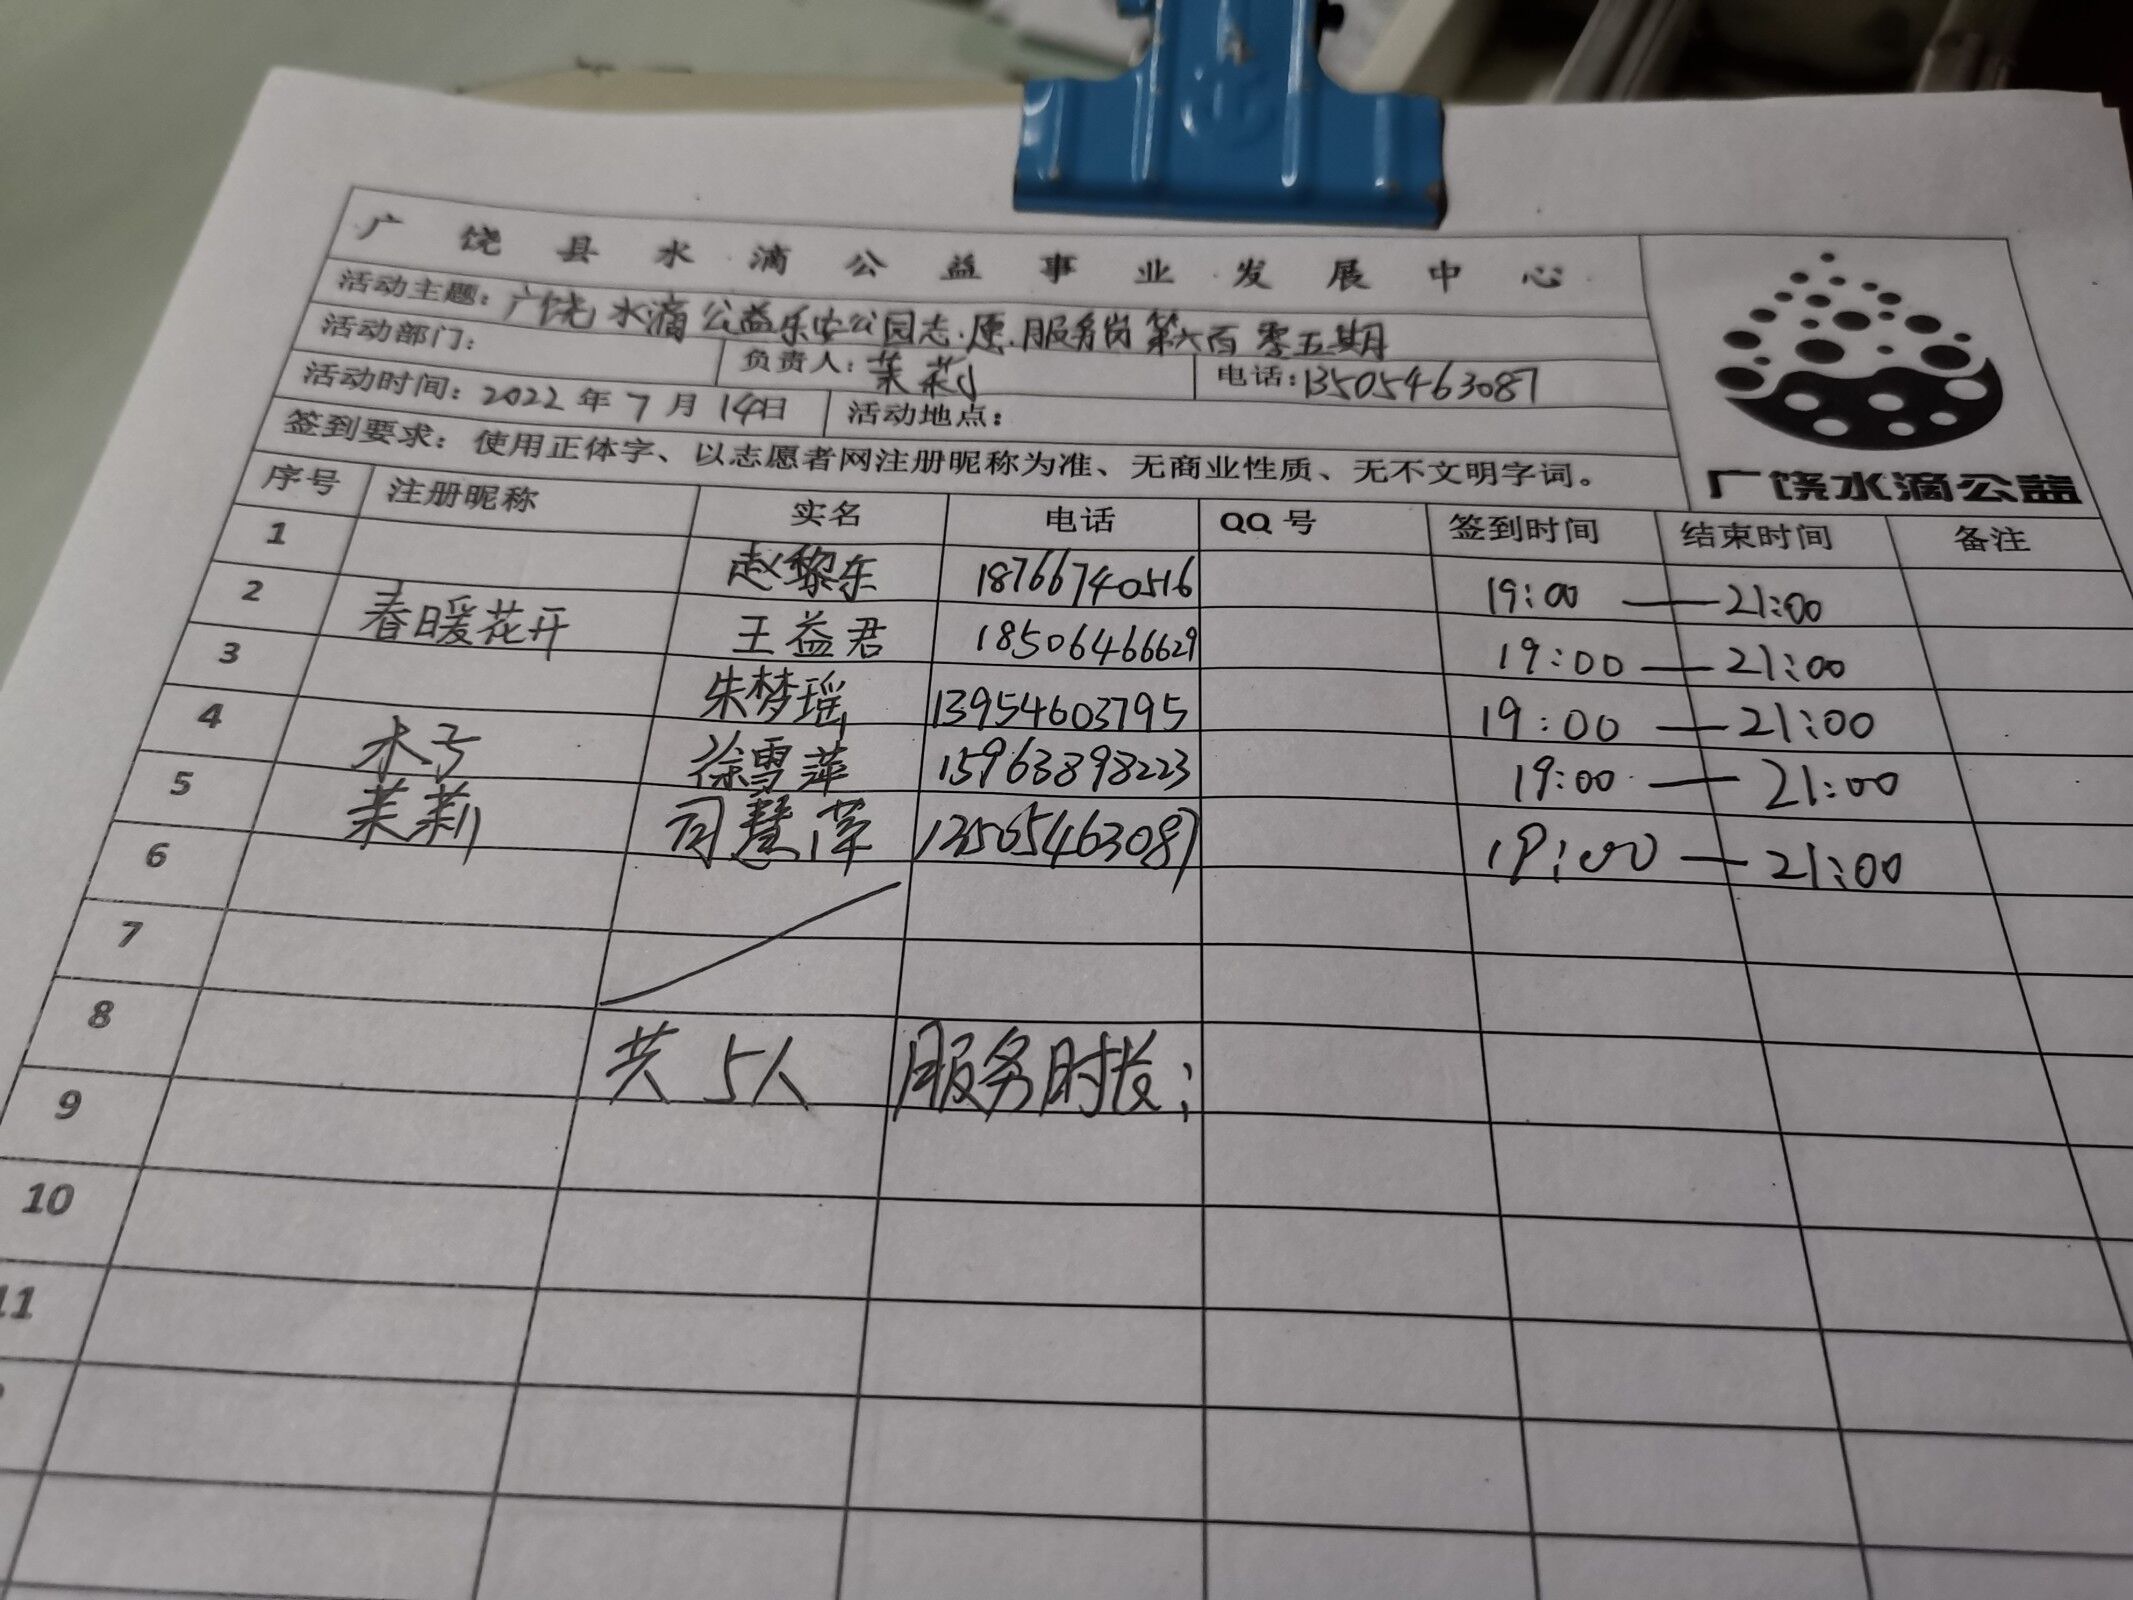 广饶县水滴公益事业发展中心
活动主题：广饶水滴公益乐安公园志愿服务岗第六百零五期
活动部门： 负责人：茉莉 电话：13505463087
活动时间：2022年7月14日 活动地点：
签到要求：使用正体字、以志愿者网注册昵称为准、无商业性质、无不文明字词。
广饶水滴公益
序号 注册昵称 实名 电话 QQ号 签到时间 结束时间 备注
1 赵黎东 18766740516 19:00——21:00
2 春暖花开 王益君 18506466629 19:00——21:00
3 朱梦瑶 13954603795 19:00——21:00
4 徐雪萍 15963898223 19:00——21:00
5 茉莉 司慧萍 13505463087 19:00——21:00
6
7
8 共5人 服务时长：
9
10
11